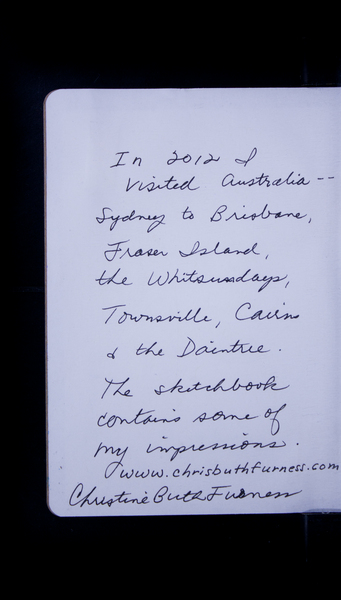 In 2012 I
visited Australia --
Sydney to Brisbane,
Fraser Island,
the Whitsundays,
Townsville, Cairns
& the Daintree.
The sketchbook
contains some of
my impressions.
www.chrisbuthfurness.com
Christine Buth Furness